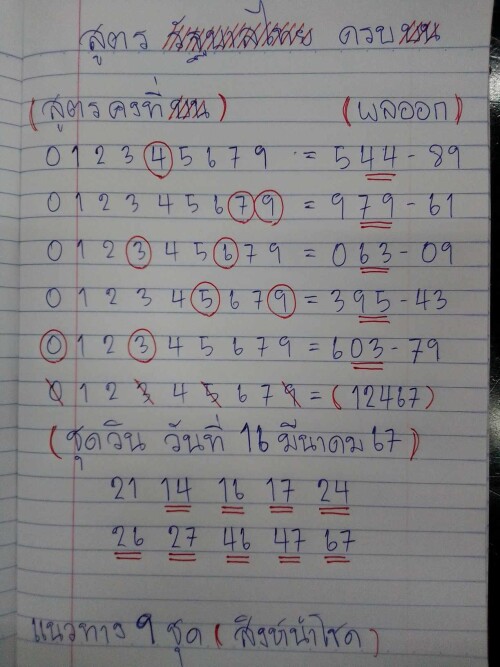 สูตร รัฐบาลไทย ครบบน
(สูตรคงที่บน) (ผลออก)
0 1 2 3 4 5 6 7 9 = 544-89
0 1 2 3 4 5 6 7 9 = 979-61
0 1 2 3 4 5 6 7 9 = 063-09
0 1 2 3 4 5 6 7 9 = 395-43
0 1 2 3 4 5 6 7 9 = 603-79
0 1 2 3 4 5 6 7 9 = (12467)
(ชุดวิน วันที่ 16 มีนาคม 67)
21 14 16 17 24
26 27 46 47 67
แนวทาง 9 ชุด (สิงห์นำโชค)